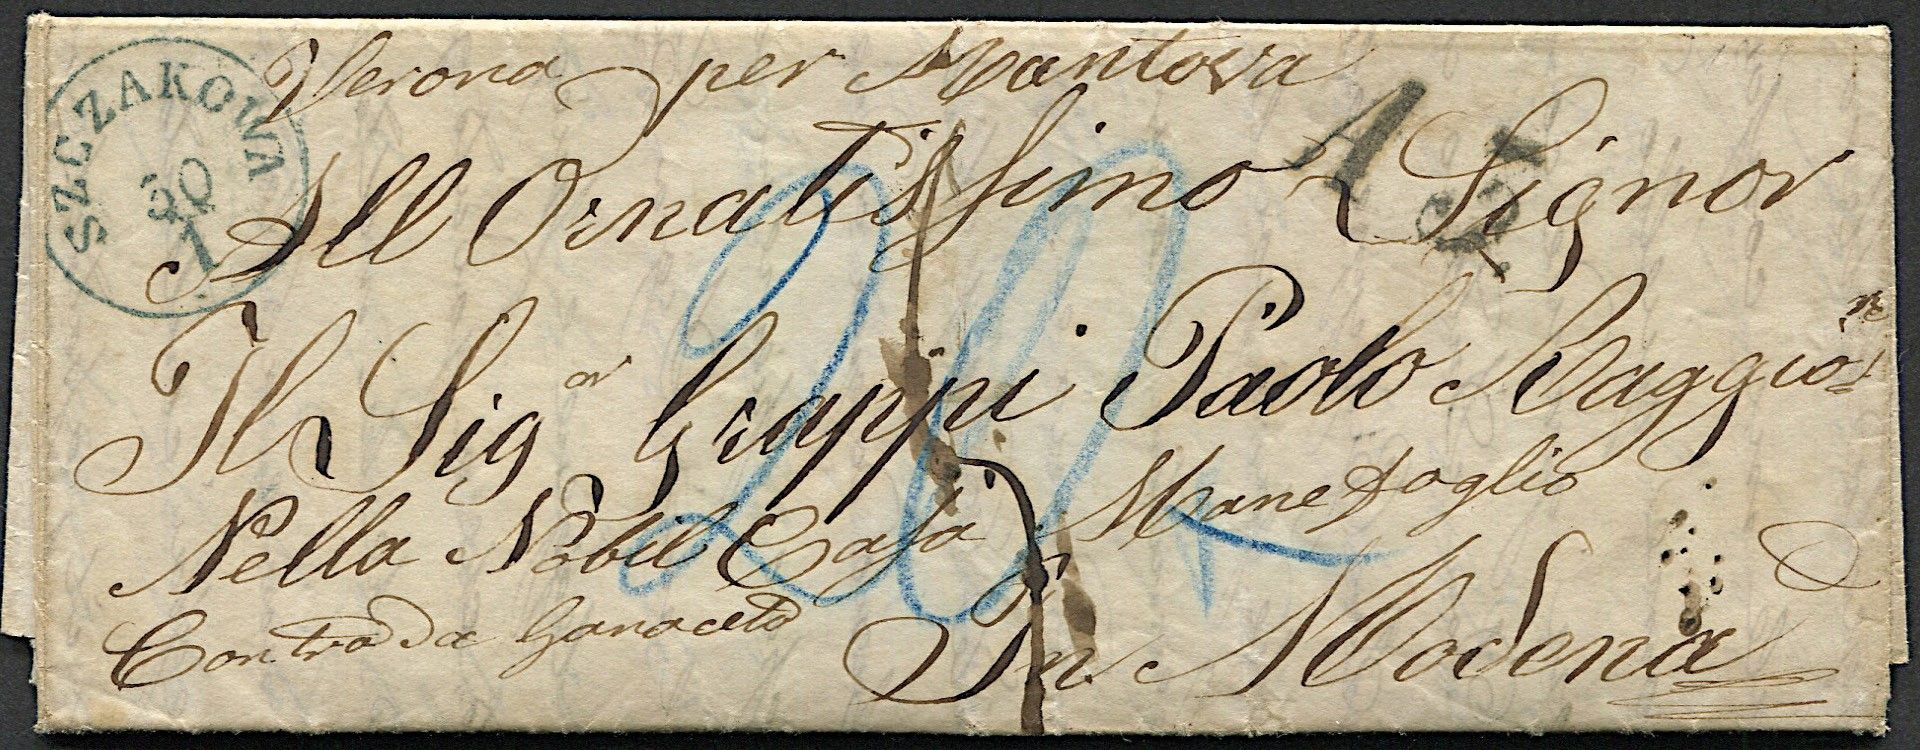 Verona per Mantova
SZCZAKOWA
30
1
All Ornatissimo Signor
Il Sig.or Grappi Paolo Raggio
Nella Nobil Casa
Contrada Ganaceto
In Modena
20